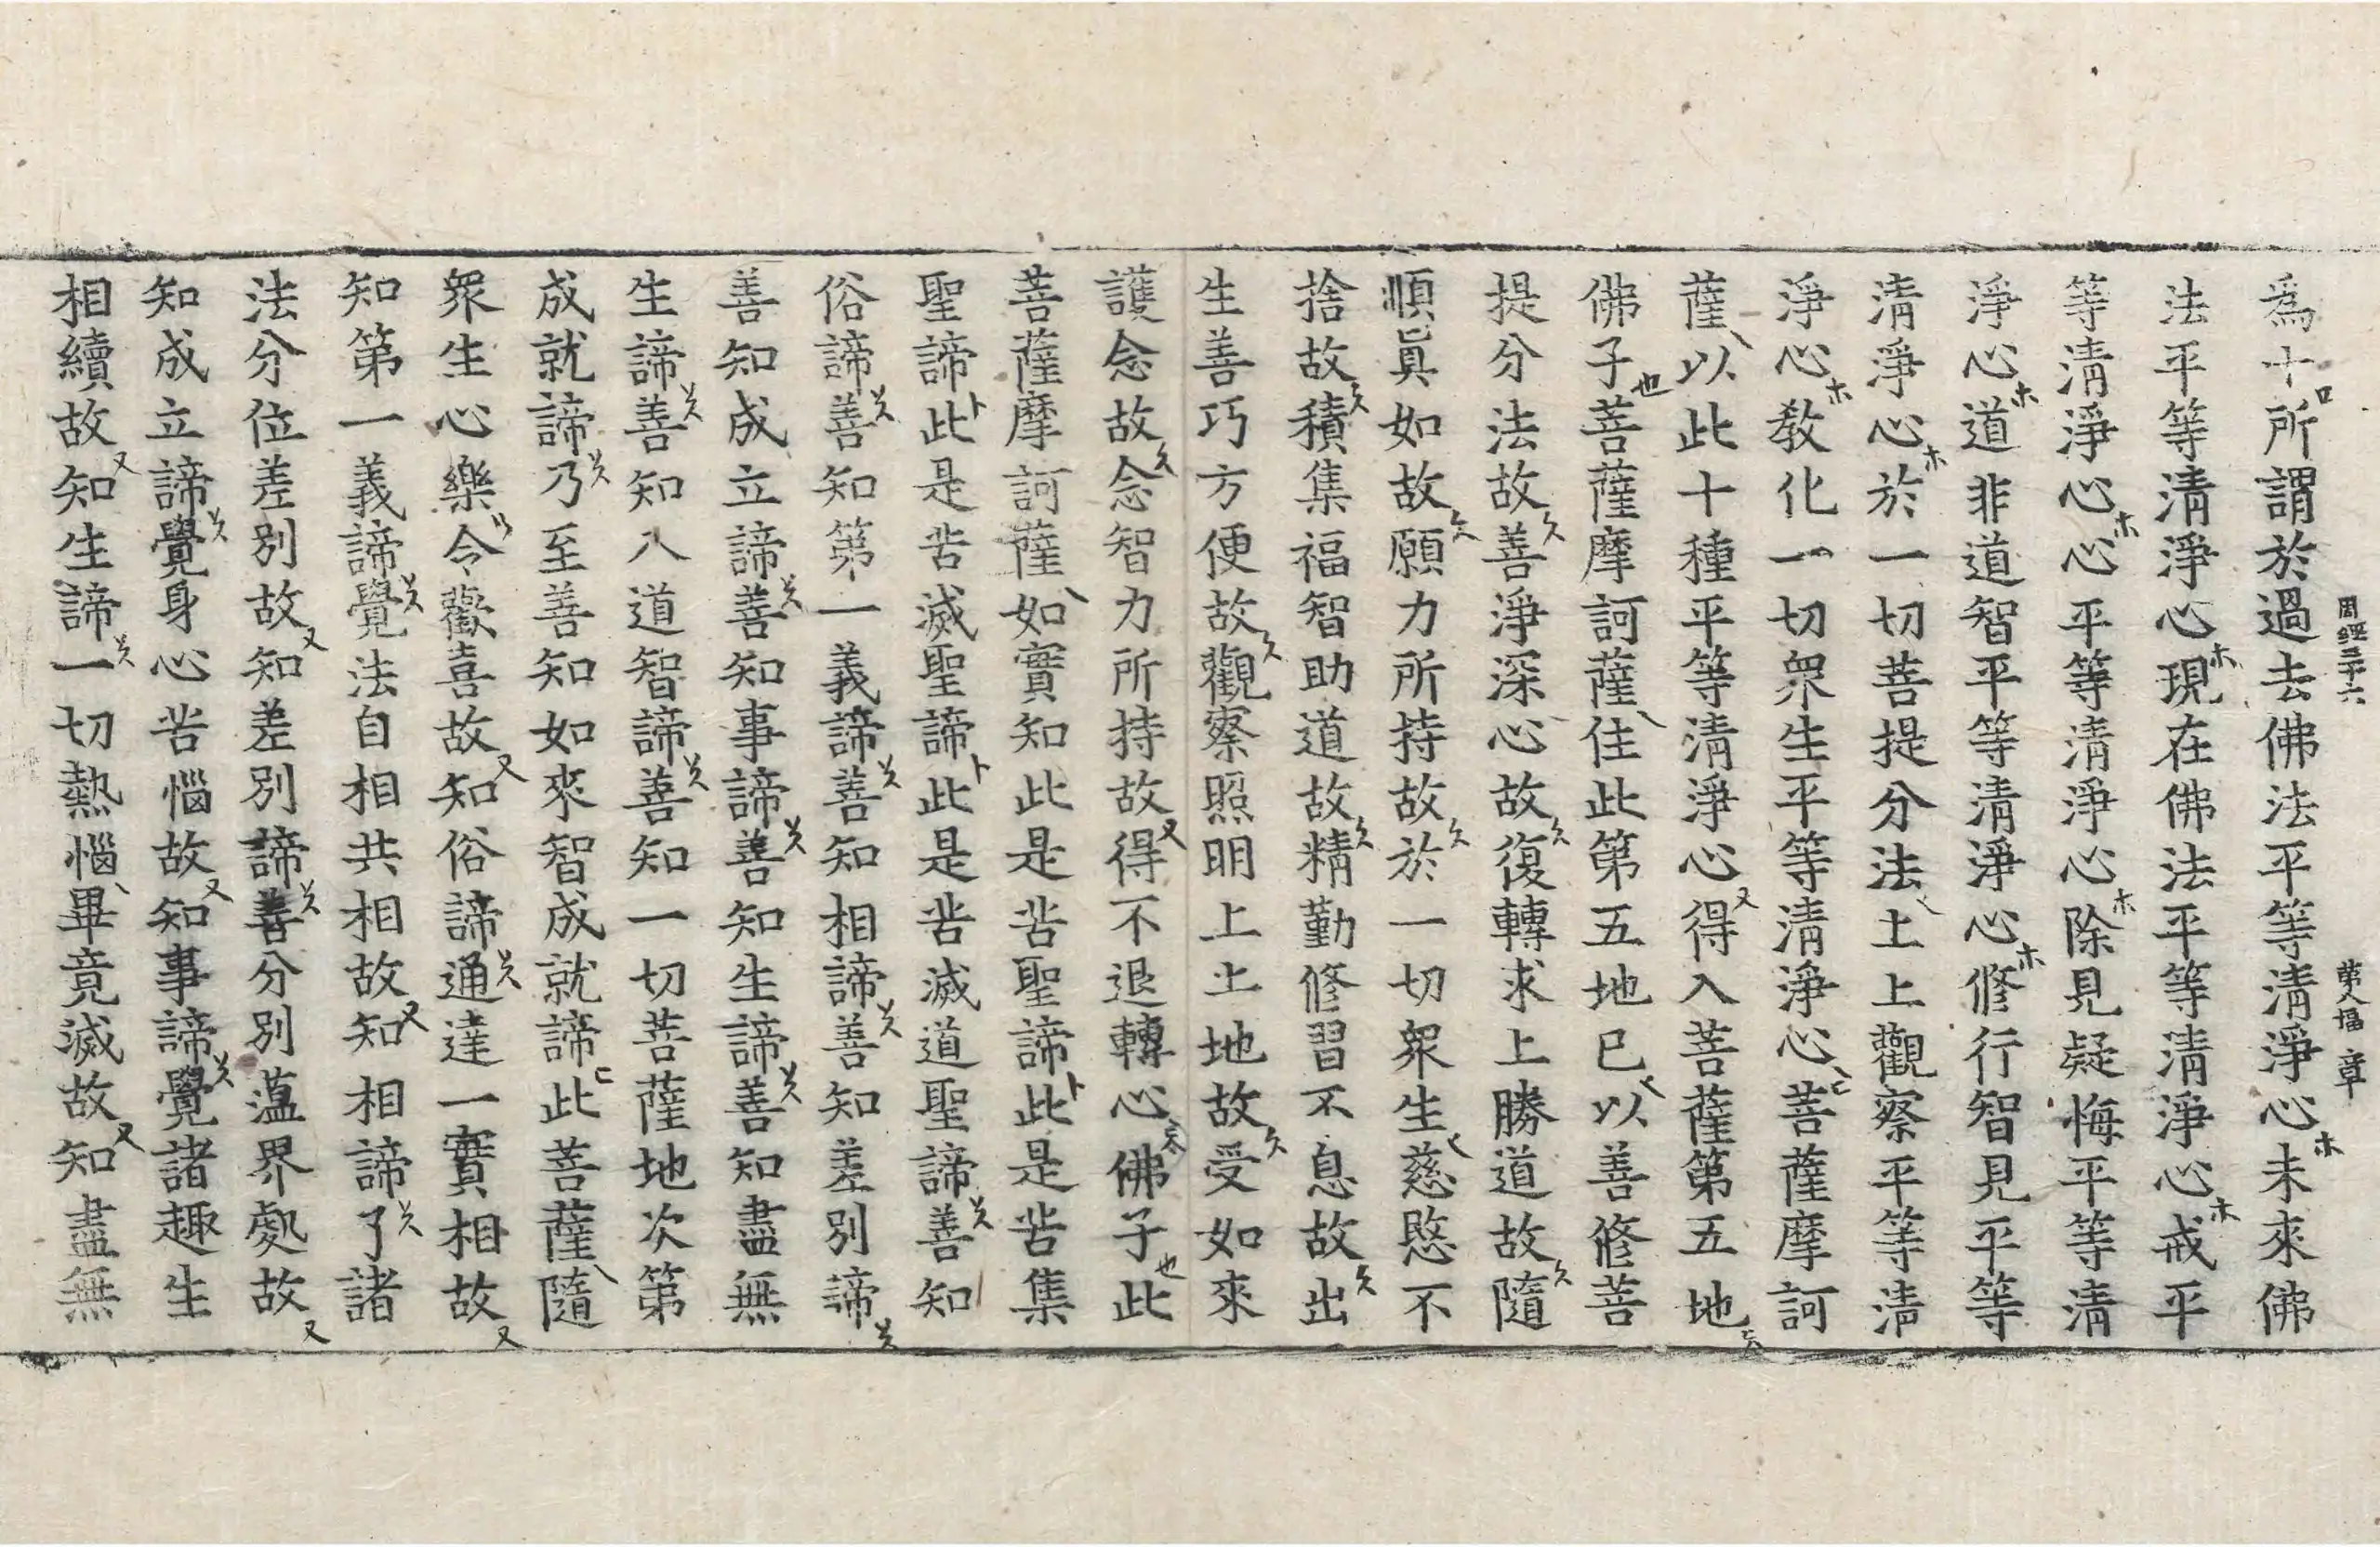 周經三十六 第八幅 章
爲十所謂於過去佛法平等清淨心未來佛
法平等清淨心現在佛法平等清淨心戒平
等清淨心心平等清淨心除見疑悔平等清
淨心道非道智平等清淨心修行智見平等
清淨心於一切菩提分法上上觀察平等清
淨心教化一切衆生平等清淨心菩薩摩訶
薩以此十種平等清淨心得入菩薩第五地
佛子菩薩摩訶薩住此第五地已以善修菩
提分法故善淨深心故復轉求上勝道故隨
順眞如故願力所持故於一切衆生慈愍不
捨故積集福智助道故精勤修習不息故出
生善巧方便故觀察照明上上地故受如來
護念故念智力所持故得不退轉心佛子此
菩薩摩訶薩如實知此是苦聖諦此是苦集
聖諦此是苦滅聖諦此是苦滅道聖諦善知
俗諦善知第一義諦善知相諦善知差別諦
善知成立諦善知事諦善知生諦善知盡無
生諦善知入道智諦善知一切菩薩地次第
成就諦乃至善知如來智成就諦此菩薩隨
衆生心樂令歡喜故知俗諦通達一實相故
知第一義諦覺法自相共相故知相諦了諸
法分位差別故知差別諦善分別蘊界處故
知成立諦覺身心苦惱故知事諦覺諸趣生
相續故知生諦一切熱惱畢竟滅故知盡無